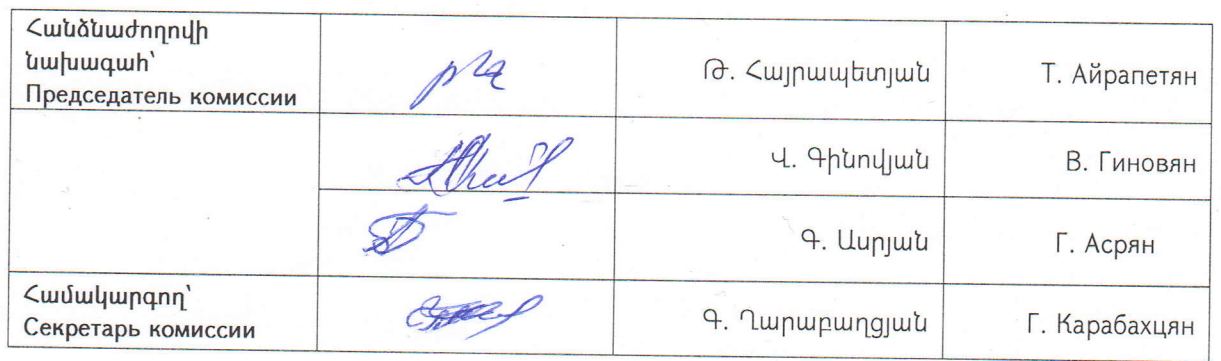 Հանձնաժողովի
նախագահ՝
Председатель комиссии
Թ. Հայրապետյան
Т. Айрапетян
Վ. Գինովյան
В. Гиновян
Գ. Ասրյան
Г. Асрян
Համակարգող՝
Секретарь комиссии
Գ. Ղարաբաղցյան
Г. Карабахцян